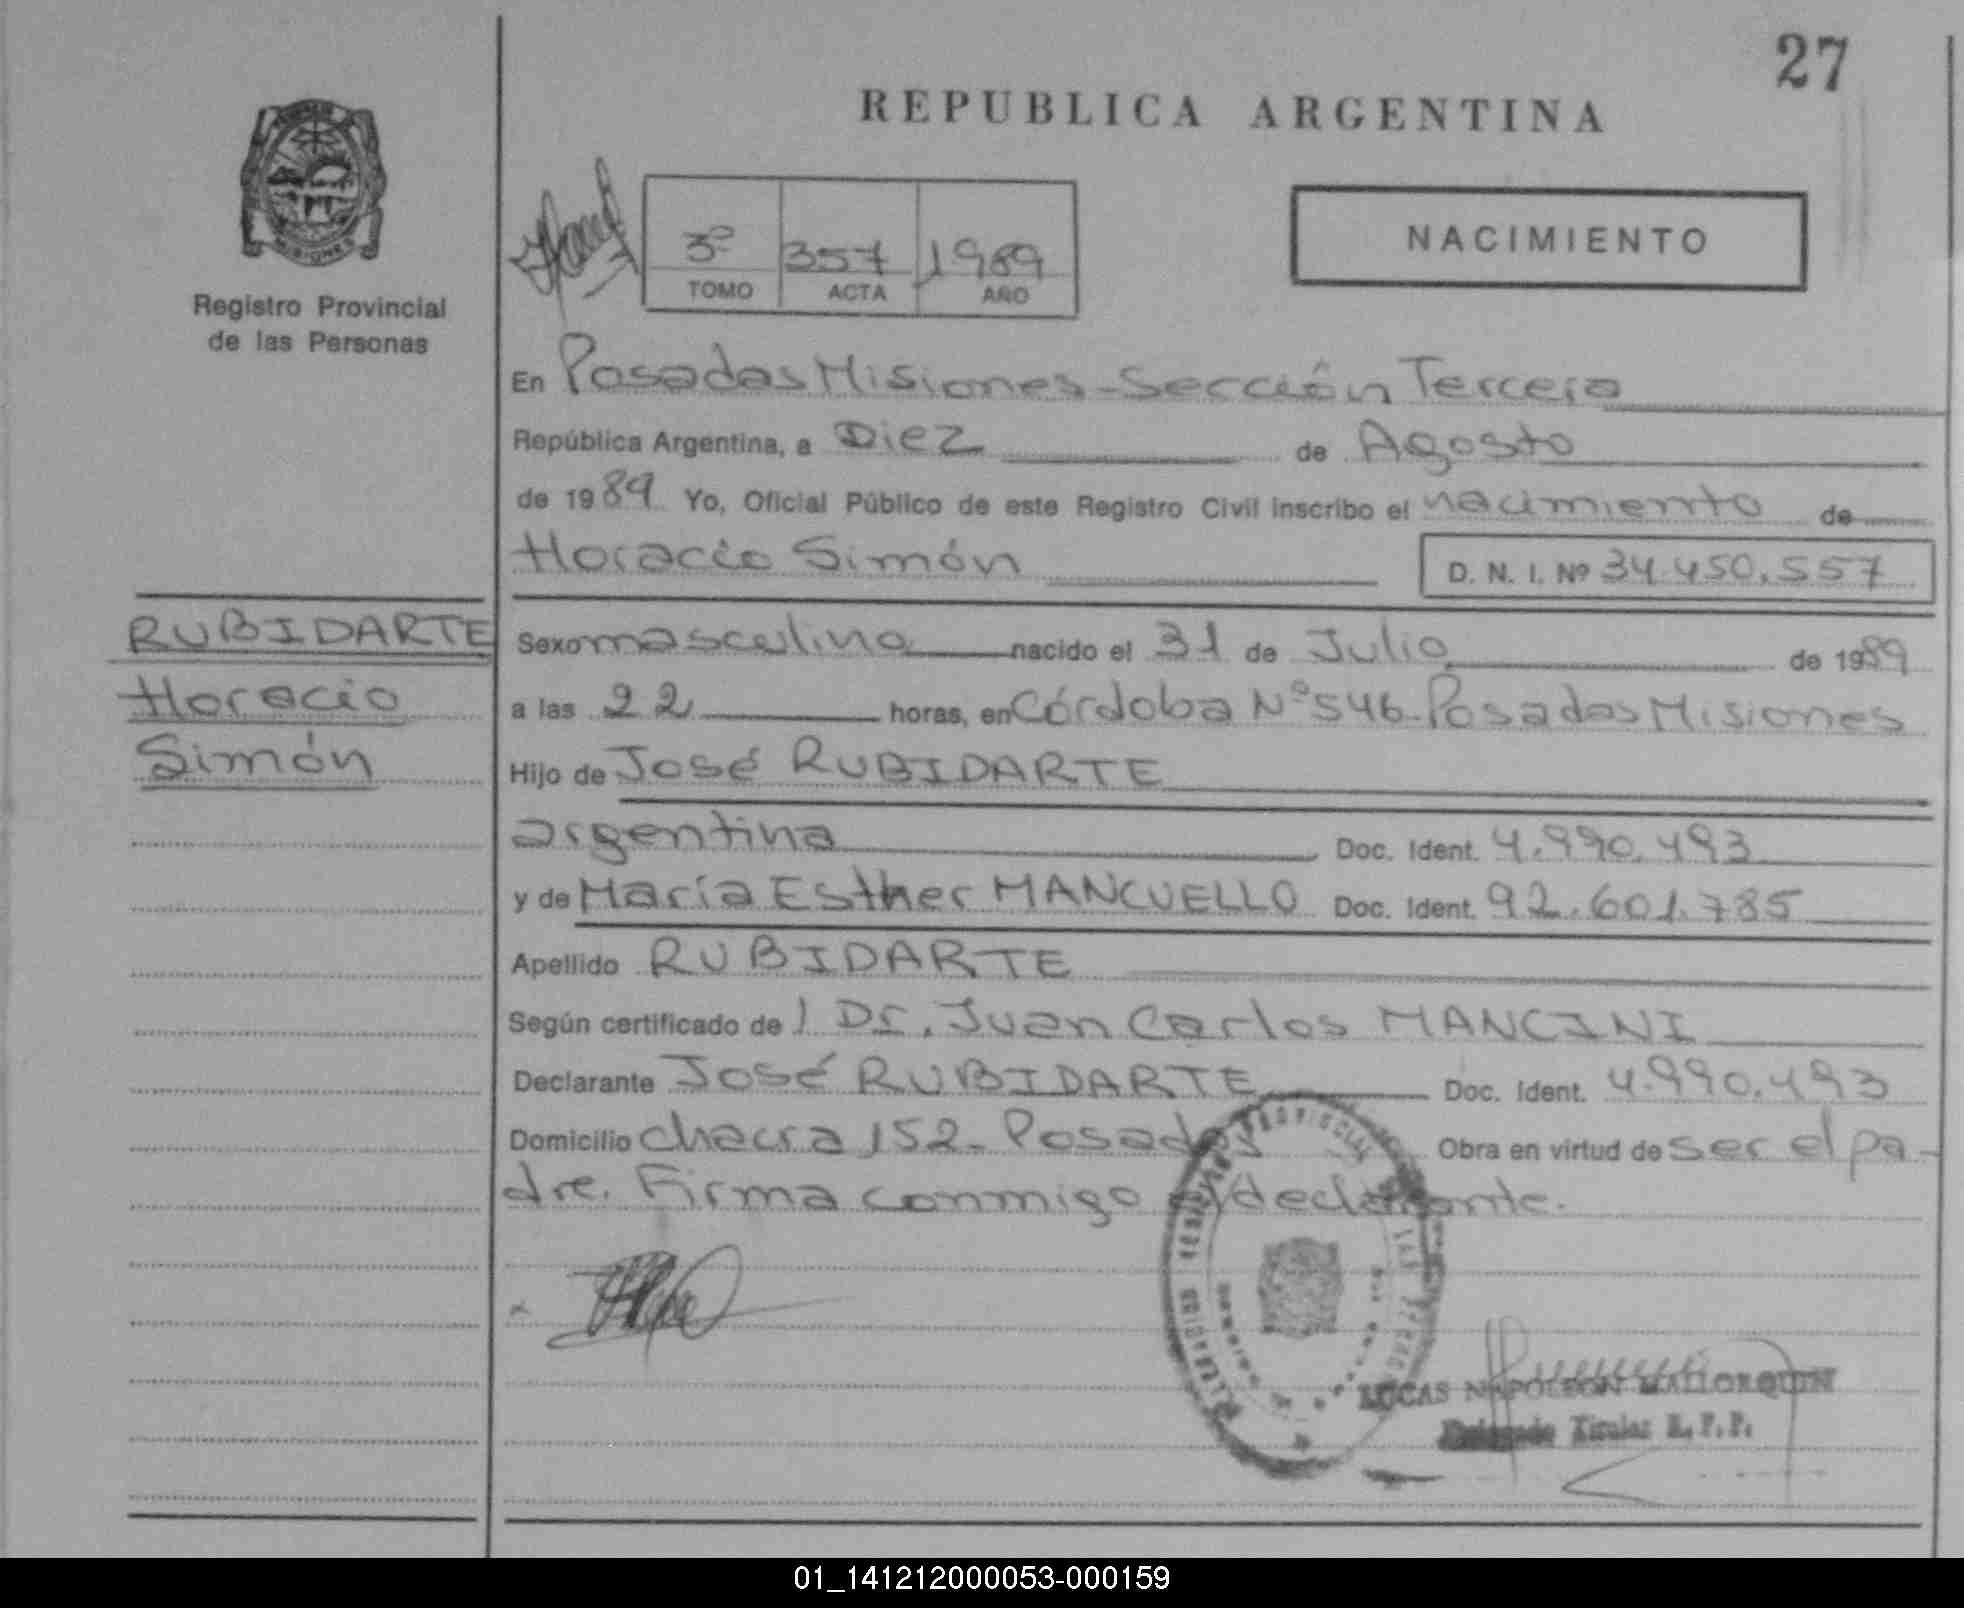 27
REPUBLICA ARGENTINA
Registro Provincial
de las Personas
3º 357 1989
TOMO ACTA AÑO
NACIMIENTO
En Posadas Misiones - Sección Tercera
República Argentina, a Diez de Agosto
de 1989 Yo, Oficial Público de este Registro Civil inscribo el nacimiento de
Horacio Simón D. N. I. Nº 34.450.557
RUBIDARTE
Horacio
Simón
Sexo masculino nacido el 31 de Julio de 1989
a las 22 horas, en Córdoba Nº 546 - Posadas Misiones
Hijo de José RUBIDARTE
argentina Doc. Ident. 4.990.493
y de María Esther MANCUELLO Doc. Ident. 92.601.785
Apellido RUBIDARTE
Según certificado de l Dr. Juan Carlos MANCINI
Declarante José RUBIDARTE Doc. Ident. 4.990.493
Domicilio chacra 152 - Posadas Obra en virtud de ser el pa-
dre. Firma conmigo el declarante.
LUCAS NAPOLEON MALLORQUIN
Delegado Titular R. P. P.
01_141212000053-000159